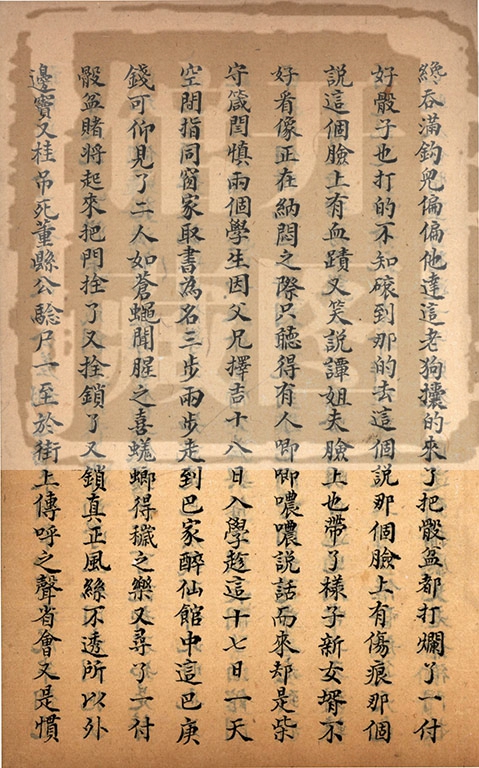 纔吞滿鈎兒偏偏他達這老狗攮的來了把骰盆都打爛了一付
好骰子也打的不知磙到那的去這個說那個臉上有傷痕那個
說這個臉上有血蹟又笑說譚姐夫臉上也帶了樣子新女壻不
好看像正在納悶之際只聽得有人唧唧噥噥說話而來却是柴
守箴閻慎兩個學生因父兄擇吉十八日入學趁這十七日一天
空閒指同窗家取書為名三步兩步走到巴家醉仙館中這巴庚
錢可仰見了二人如蒼蠅聞腥之喜蜣螂得穢之樂又尋了一付
骰盆賭將起來把門拴了又拴鎖了又鎖真正風絲不透所以外
邊竇又桂吊死董縣公驗尸一至於街上傳呼之聲省會又是慣